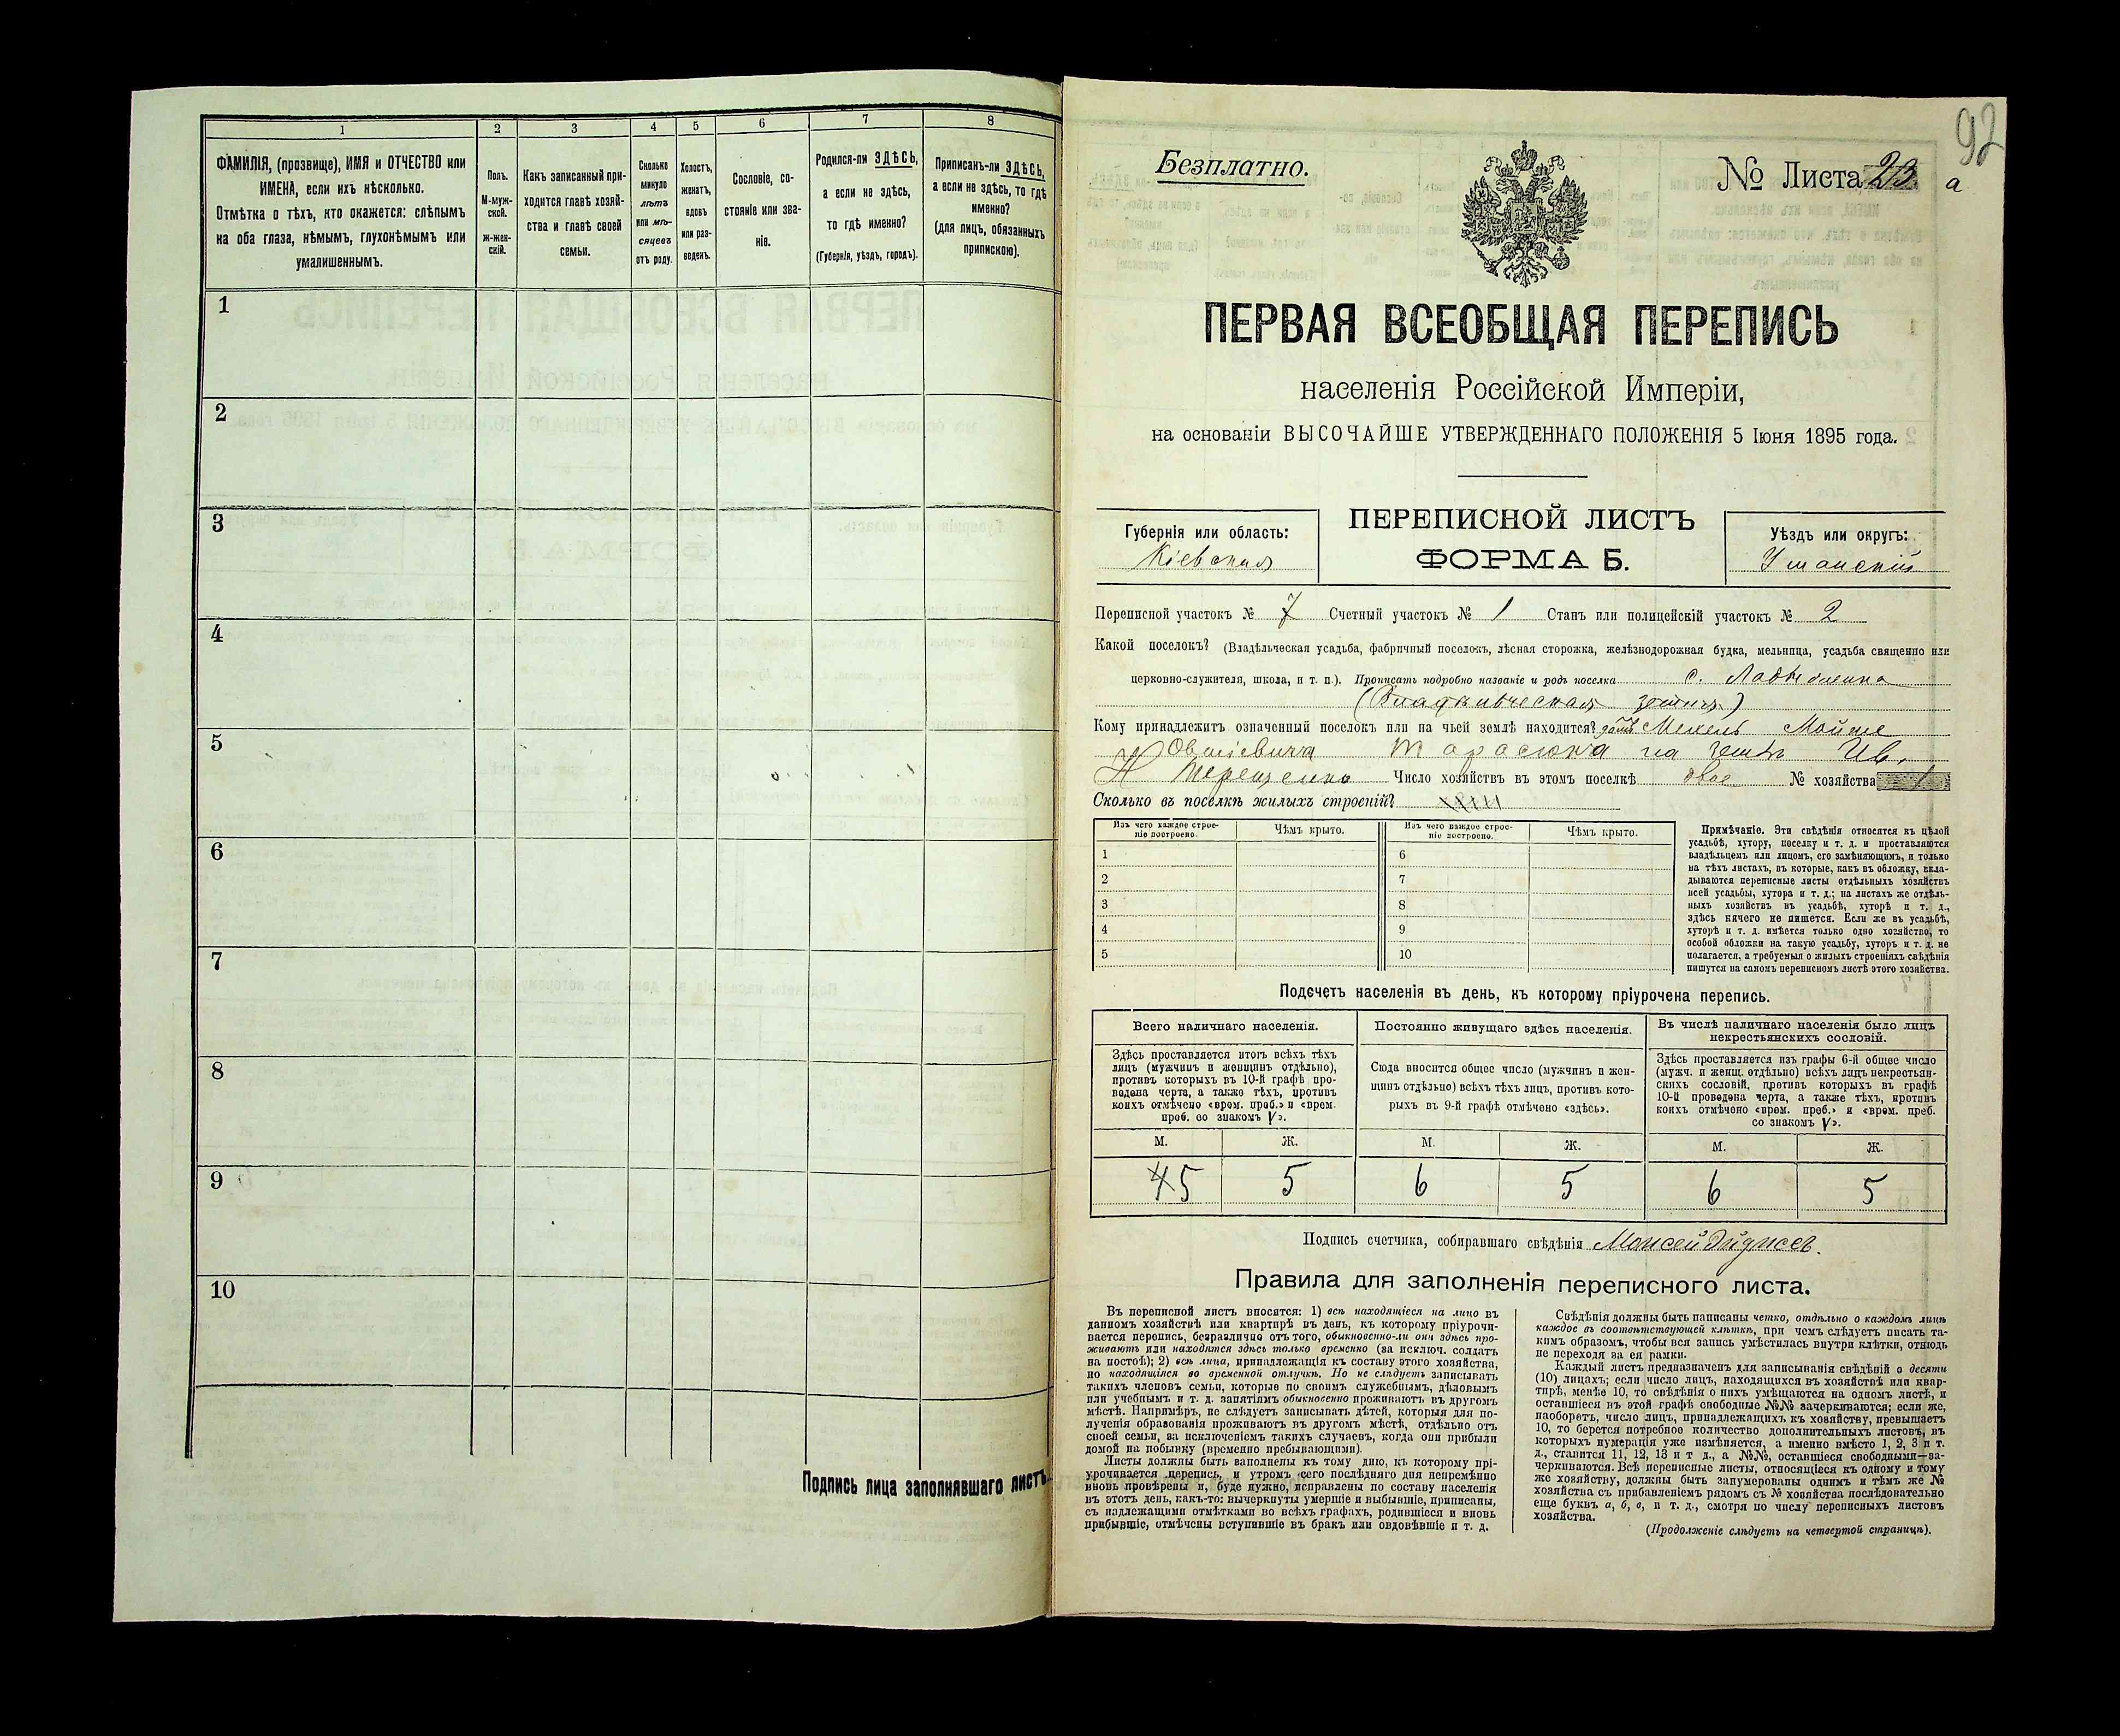 1 2 3 4 5 6 7 8
ФАМИЛІЯ, (прозвище), ИМЯ и ОТЧЕСТВО или
ИМЕНА, если ихъ нѣсколько.
Отмѣтка о тѣхъ, кто окажется: слѣпымъ
на оба глаза, нѣмымъ, глухонѣмымъ или
умалишеннымъ.
Полъ.
М-муж-
ской.
ж-жен-
скій.
Какъ записанный при-
ходится главѣ хозяй-
ства и главѣ своей
семьи.
Сколько
минуло
лѣтъ
или мѣ-
сяцевъ
отъ роду.
Холостъ,
женатъ,
вдовъ
или раз-
веденъ.
Сословіе, со-
стояніе или зва-
ніе.
Родился-ли ЗДѢСЬ,
а если не здѣсь,
то гдѣ именно?
(Губернія, уѣздъ, городъ).
Приписанъ-ли ЗДѢСЬ,
а если не здѣсь, то гдѣ
именно?
(для лицъ, обязанныхъ
припискою).
1
2
3
4
5
6
7
8
9
10
Подпись лица заполнявшаго листъ
92
Безплатно.
№ Листа 23 а
ПЕРВАЯ ВСЕОБЩАЯ ПЕРЕПИСЬ
населенія Россійской Имперіи,
на основаніи ВЫСОЧАЙШЕ УТВЕРЖДЕННАГО ПОЛОЖЕНІЯ 5 Іюня 1895 года.
Губернія или область:
Кіевская
ПЕРЕПИСНОЙ ЛИСТЪ
ФОРМА Б.
Уѣздъ или округъ:
Уманскій
Переписной участокъ № 7 Счетный участокъ № 1 Станъ или полицейскій участокъ № 2
Какой поселокъ? (Владѣльческая усадьба, фабричный поселокъ, лѣсная сторожка, желѣзнодорожная будка, мельница, усадьба священно или
церковно-служителя, школа, и т. п.). Прописать подробно названіе и родъ поселка с. Ладыженка
(Владѣльческая земля)
Кому принадлежитъ означенный поселокъ или на чьей землѣ находится? домъ Мехель Мойше
Овшіевича Тарасюка на землѣ Ив.
Н Терещенко Число хозяйствъ въ этомъ поселкѣ двое № хозяйства 1
Сколько въ поселкѣ жилыхъ строеній?
Изъ чего каждое строе-
ніе построено.
Чѣмъ крыто.
Изъ чего каждое строе-
ніе построено.
Чѣмъ крыто.
1 6
2 7
3 8
4 9
5 10
Примѣчаніе. Эти свѣдѣнія относятся къ цѣлой
усадьбѣ, хутору, поселку и т. д. и проставляются
владѣльцемъ или лицомъ, его замѣняющимъ, и только
на тѣхъ листахъ, въ которые, какъ въ обложку, вкла-
дываются переписные листы отдѣльныхъ хозяйствъ
всей усадьбы, хутора и т. д.; на листахъ же отдѣль-
ныхъ хозяйствъ въ усадьбѣ, хуторѣ и т. д.,
здѣсь ничего не пишется. Если же въ усадьбѣ,
хуторѣ и т. д. имѣется только одно хозяйство, то
особой обложки на такую усадьбу, хуторъ и т. д. не
полагается, а требуемыя о жилыхъ строеніяхъ свѣдѣнія
пишутся на самомъ переписномъ листѣ этого хозяйства.
Подсчетъ населенія въ день, къ которому пріурочена перепись.
Всего наличнаго населенія.
Здѣсь проставляется итогъ всѣхъ тѣхъ
лицъ (мужчинъ и женщинъ отдѣльно),
противъ которыхъ въ 10-й графѣ про-
ведена черта, а также тѣхъ, противъ
коихъ отмѣчено «врем. преб.» и «врем.
преб. со знакомъ V».
Постоянно живущаго здѣсь населенія.
Сюда вносится общее число (мужчинъ и жен-
щинъ отдѣльно) всѣхъ тѣхъ лицъ, противъ кото-
рыхъ въ 9-й графѣ отмѣчено «здѣсь».
Въ числѣ наличнаго населенія было лицъ
некрестьянскихъ сословій.
Здѣсь проставляется изъ графы 6-й общее число
(мужч. и женщ. отдѣльно) всѣхъ лицъ некрестьян-
скихъ сословій, противъ которыхъ въ графѣ
10-й проведена черта, а также тѣхъ, противъ
коихъ отмѣчено «врем. преб.» и «врем. преб.
со знакомъ V».
М. Ж. М. Ж. М. Ж.
4 5 5 6 5 6 5
Подпись счетчика, собиравшаго свѣдѣнія Моисей
Правила для заполненія переписного листа.
Въ переписной листъ вносятся: 1) всѣ находящіеся на лицо въ
данномъ хозяйствѣ или квартирѣ въ день, къ которому пріурочи-
вается перепись, безразлично отъ того, обыкновенно-ли они здѣсь про-
живаютъ или находятся здѣсь только временно (за исключ. солдатъ
на постоѣ); 2) всѣ лица, принадлежащія къ составу этого хозяйства,
но находящіяся во временной отлучкѣ. Но не слѣдуетъ записывать
такихъ членовъ семьи, которые по своимъ служебнымъ, дѣловымъ
или учебнымъ и т. д. занятіямъ обыкновенно проживаютъ въ другомъ
мѣстѣ. Напримѣръ, не слѣдуетъ записывать дѣтей, которыя для по-
лученія образованія проживаютъ въ другомъ мѣстѣ, отдѣльно отъ
своей семьи, за исключеніемъ такихъ случаевъ, когда они прибыли
домой на побывку (временно пребывающими).
Листы должны быть заполнены къ тому дню, къ которому прі-
урочивается перепись, и утромъ сего послѣдняго дня непремѣнно
вновь провѣрены и, буде нужно, исправлены по составу населенія
въ этотъ день, какъ-то: вычеркнуты умершіе и выбывшіе, приписаны,
съ надлежащими отмѣтками во всѣхъ графахъ, родившіеся и вновь
прибывшіе, отмѣчены вступившіе въ бракъ или овдовѣвшіе и т. д.
Свѣдѣнія должны быть написаны четко, отдѣльно о каждомъ лицѣ
каждое въ соотвѣтствующей клѣткѣ, при чемъ слѣдуетъ писать та-
кимъ образомъ, чтобы вся запись умѣстилась внутри клѣтки, отнюдь
не переходя за ея рамки.
Каждый листъ предназначенъ для записыванія свѣдѣній о десяти
(10) лицахъ; если число лицъ, находящихся въ хозяйствѣ или квар-
тирѣ, менѣе 10, то свѣдѣнія о нихъ умѣщаются на одномъ листѣ, и
оставшіеся въ этой графѣ свободные №№ зачеркиваются; если же,
наоборотъ, число лицъ, принадлежащихъ къ хозяйству, превышаетъ
10, то берется потребное количество дополнительныхъ листовъ, въ
которыхъ нумерація уже измѣняется, а именно вмѣсто 1, 2, 3 и т.
д., ставится 11, 12, 13 и т д., а №№, оставшіеся свободными—за-
черкиваются. Всѣ переписные листы, относящіеся къ одному и тому
же хозяйству, должны быть занумерованы однимъ и тѣмъ же №
хозяйства съ прибавленіемъ рядомъ съ № хозяйства послѣдовательно
еще буквъ а, б, в, и т. д., смотря по числу переписныхъ листовъ
хозяйства.
(Продолженіе слѣдуетъ на четвертой страницѣ).